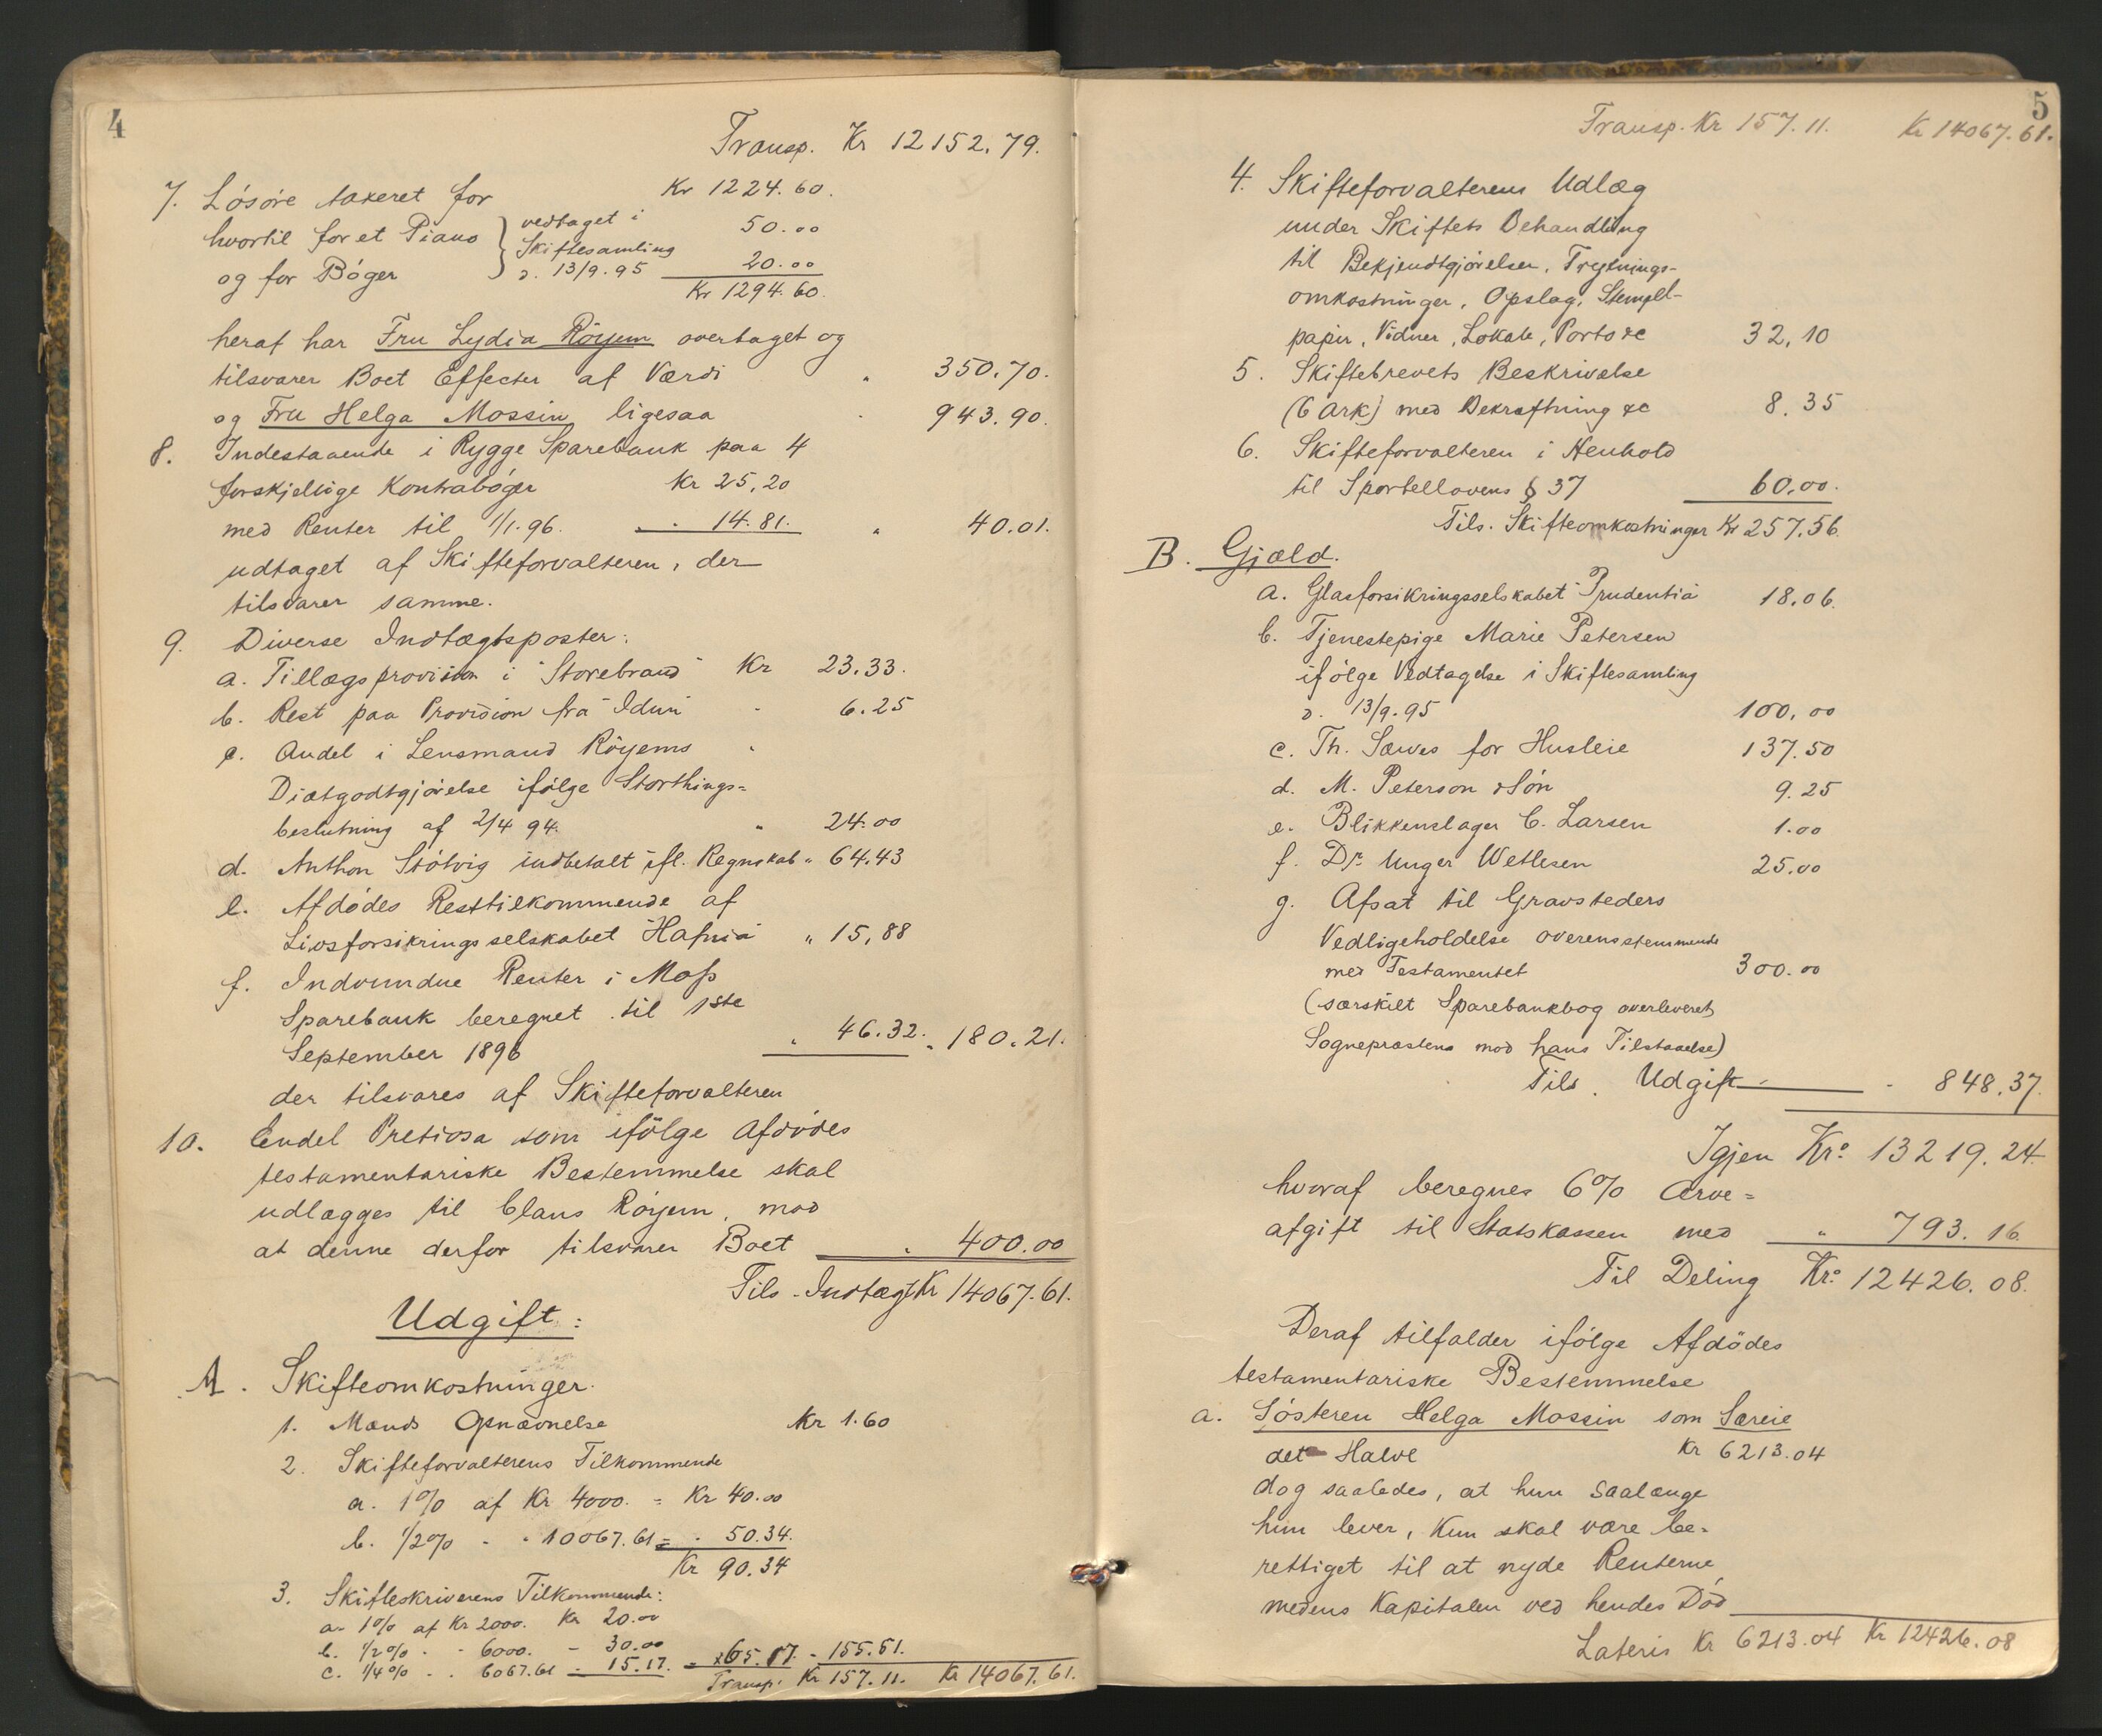 4
Transp. Kr 12152.79.
7. Lósóre taxeret for Kr 1224.60.
hvortil for et Piano } vedtaget i 50.00
og for Bóger } Skiftesamling d. 13/9.95 20.00
Kr 1294.60.
heraf har Fru Lydia Röyem overtaget og
tilsvarer Boet Effecter af Værdi " 350.70.
og Fru Helga Mossin ligesaa " 943.90.
8. Indestaaende i Rygge Sparebank paa 4
forskjellige Kontrabóger Kr 25,20
med Renter til 1/1.96. " 14.81. " 40.01.
udtaget af Skifteforvalteren, der
tilsvarer samme.
9. Diverse Indtægtsposter:
a. Tillægsprovision i "Storebrand" Kr 23.33.
b. Rest paa Provision fra "Idun" " 6.25
c. Andel i Lensmand Röyems "
Diætgodtgjörelse ifölge Storthings=
beslutning af 2/4 94. " 24.00
d. Anthon Stótvig indbetalt ifl. Regnskab " 64.43
e. Afdódes Resttilkommende af
Livsforsikringsselskabet "Hafnia" " 15,88
f. Indvundne Renter i Moss
Sparebank beregnet til 1ste
September 1896 " 46.32. " 180.21.
der tilsvares af Skifteforvalteren
10. Endel Pretiosa som ifölge Afdödes
testamentariske Bestemmelse skal
udlægges til Claus Röyem, mod
at denne derfor tilsvarer Boet " 400.00
Tils. Indtægt Kr 14067.61.
Udgift:
A. Skifteomkostninger.
1. Mænds Opnævnelse Kr 1.60
2. Skifteforvalterens Tilkommende
a. 1% af Kr 4000. = Kr 40.00
b. 1/2% " " 10067.61 = " 50.34.
Kr 90.34
3. Skifteskriverens Tilkommende:
a. 1% af Kr 2000. Kr 20.00
b. 1/2% " " 6000. - 30.00
c. 1/4% " " 6067.61 - 15.17. = 65.17. - 155.51.
Transp. Kr 157.11. Kr 14067.61.
5
Transp. Kr 157.11. Kr 14067.61.
4. Skifteforvalterens Udlæg
under Skiftets Behandling
til Bekjendtgjörelser, Tryknings-
omkostninger, Opslag, Stempel-
papir, Vidner, Lokale, Porto &c 32,10
5. Skiftebrevets Beskrivelse
(6 Ark) med Bekræftning &c 8.35
6. Skifteforvalteren i Henhold
til Sportellovens § 37 60.00.
Tils. Skifteomkostninger Kr 257.56.
B. Gjæld.
a. Glasforsikringsselskabet "Prudentia" 18.06.
b. Tjenestepige Marie Petersen
ifölge Vedtagelse i Skiftesamling
d. 13/9.95 100.00
c. Th. Sæwes for Husleie 137.50
d. M. Peterson & Són 9.25
e. Blikkenslager C. Larsen 1.00
f. Dr. Unger Wetlesen 25.00
g. Afsat til Gravsteders
Vedligeholdelse overensstemmende
med Testamentet 300.00
(særskilt Sparebankbog overleveret
Sognepræstens mod hans Tilstaaelse)
Tils. Udgift " 848.37.
Igjen Kr. 13219.24
hvoraf beregnes 6% Arve=
afgift til Statskassen med " 793.16.
Til Deling Kr. 12426.08.
Deraf tilfalder ifölge Afdödes
testamentariske Bestemmelse
a. Sösteren Helga Mossin som Særeie
det Halve Kr 6213.04
dog saaledes, at hun saalænge
hun lever, kun skal være be-
rettiget til at nyde Renterne,
medens Kapitalen ved hendes Död
Lateris Kr 6213.04 Kr 12426.08